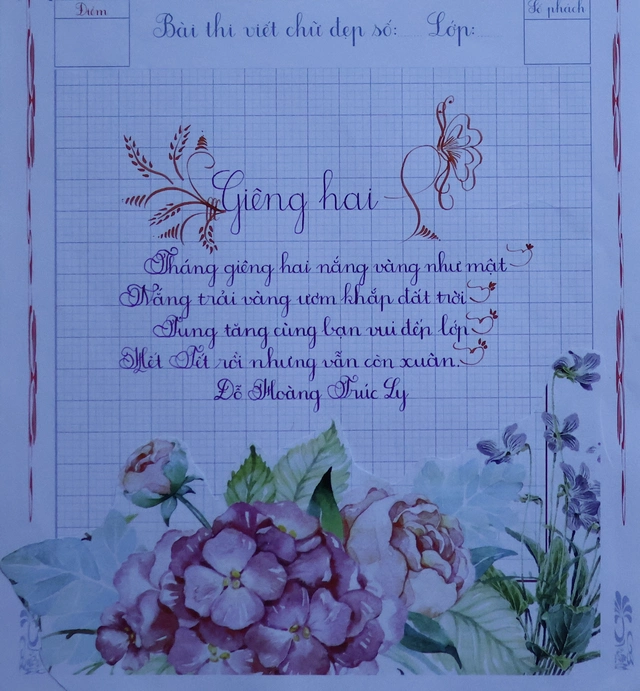 Điểm
Số phách
Bài thi viết chữ đẹp số: Lớp:
Giêng hai
Tháng giêng hai nắng vàng như mật
Nắng trải vàng ươm khắp đất trời
Tung tăng cùng bạn vui đếp lớp
Hết Tết rồi nhưng vẫn còn xuân.
Đỗ Hoàng Trúc Ly